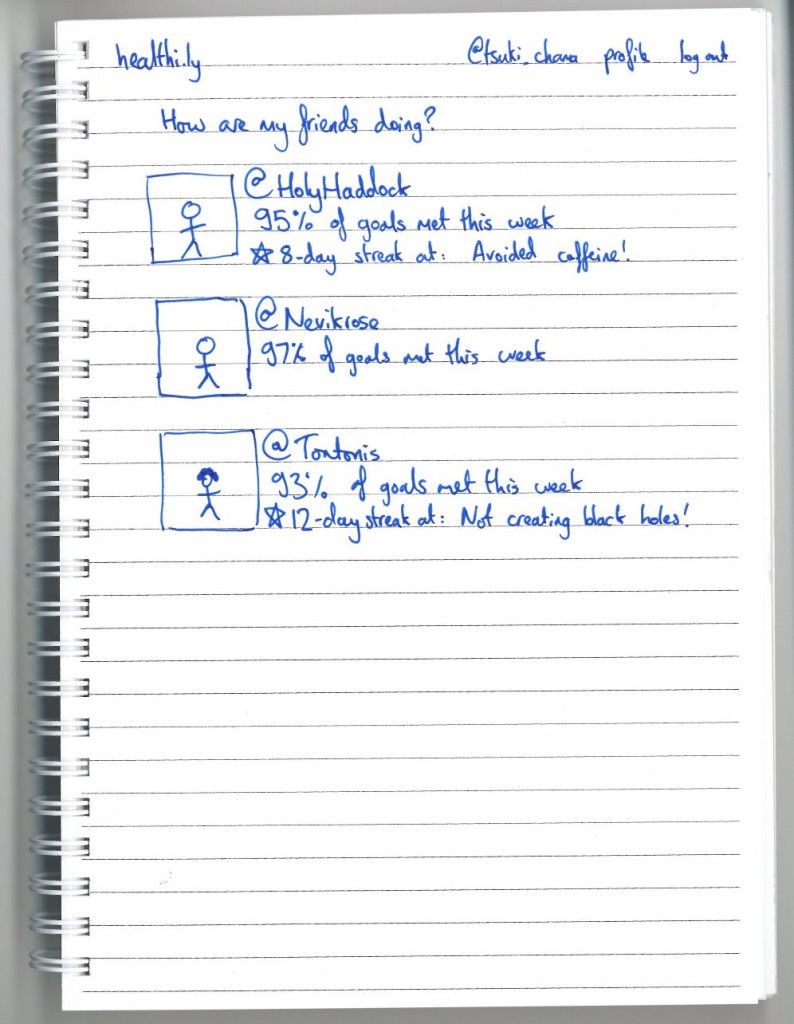 healthi.ly @tsuki_chana profile log out
How are my friends doing?
@HolyHaddock
95% of goals met this week
☆ 8-day streak at: Avoided caffeine!
@Nevikrose
97% of goals met this week
@Tontonis
93% of goals met this week
☆ 12-day streak at: Not creating black holes!